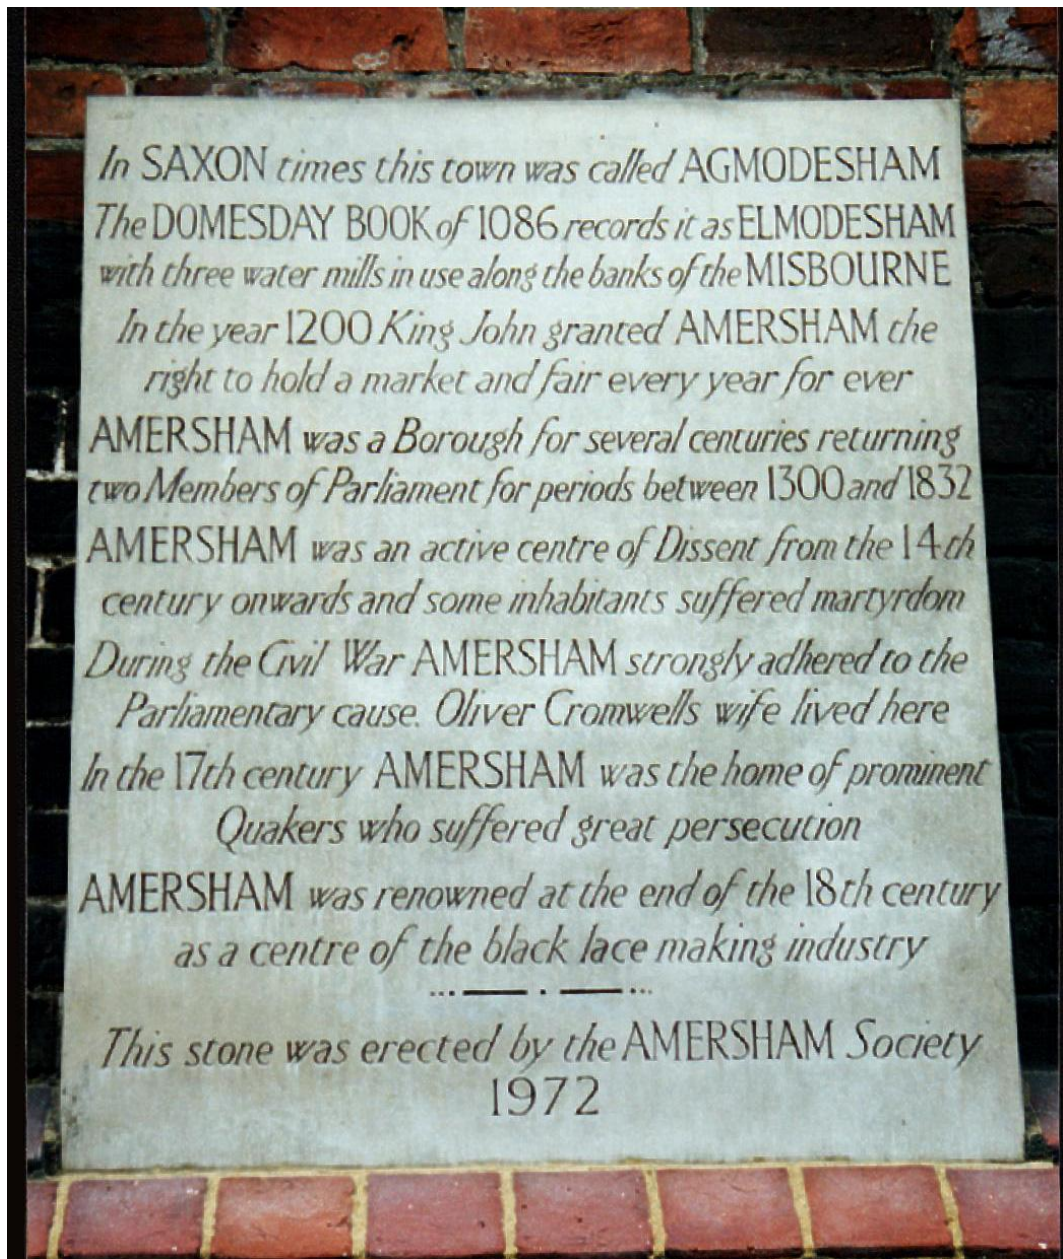 In SAXON times this town was called AGMODESHAM
The DOMESDAY BOOK of 1086 records it as ELMODESHAM
with three water mills in use along the banks of the MISBOURNE
In the year 1200 King John granted AMERSHAM the
right to hold a market and fair every year for ever
AMERSHAM was a Borough for several centuries returning
two Members of Parliament for periods between 1300 and 1832
AMERSHAM was an active centre of Dissent from the 14th
century onwards and some inhabitants suffered martyrdom
During the Civil War AMERSHAM strongly adhered to the
Parliamentary cause. Oliver Cromwells wife lived here
In the 17th century AMERSHAM was the home of prominent
Quakers who suffered great persecution
AMERSHAM was renowned at the end of the 18th century
as a centre of the black lace making industry
This stone was erected by the AMERSHAM Society
1972